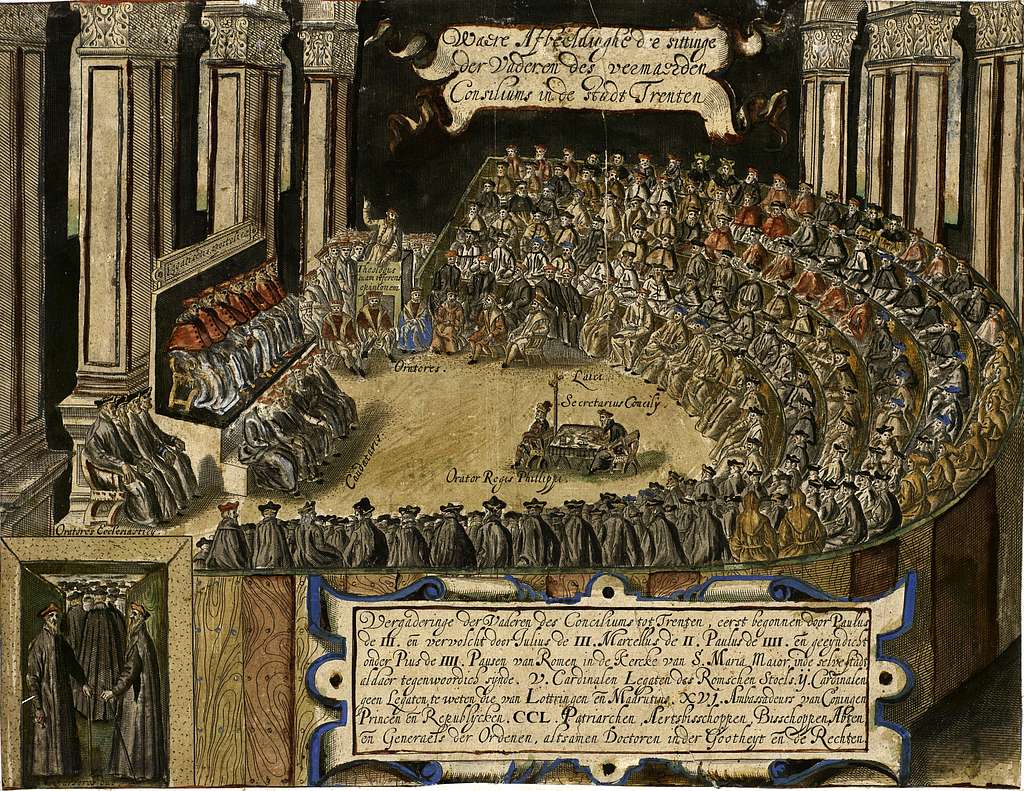 Waere Afbeeldinghe d'e sittinge
der Vaderen des vermaerden
Consiliums in de stadt Trenten
Theologus
opinionem
Oratores.
Laici
Secretarius Concily
Orator Regis Philippi.
Oratores Ecclesiastici
Vergaderinge der Vaderen des Conciliums tot Trenten, eerst begonnen door Paulus
de III. en vervolcht door Julius de III. Marcellus de II. Paulus de IIII. en geeyndicht
onder Pius de IIII. Pausen van Romen in de Kercke van S. Maria Maior, inde selve stadt
aldaer tegenwoordich synde. V. Cardinalen Legaten des Romschen Stoels. IJ. Cardinalen
geen Legaten, te weten die van Lottringen en Madrutius. XVJ. Ambassadeurs van Coningen
Princen en Republycken. CCL. Patriarchen, Aertsbisschoppen, Bisschoppen, Abten
en Generaels der Ordenen, altsamen Doctoren in der Gootheyt en de Rechten.